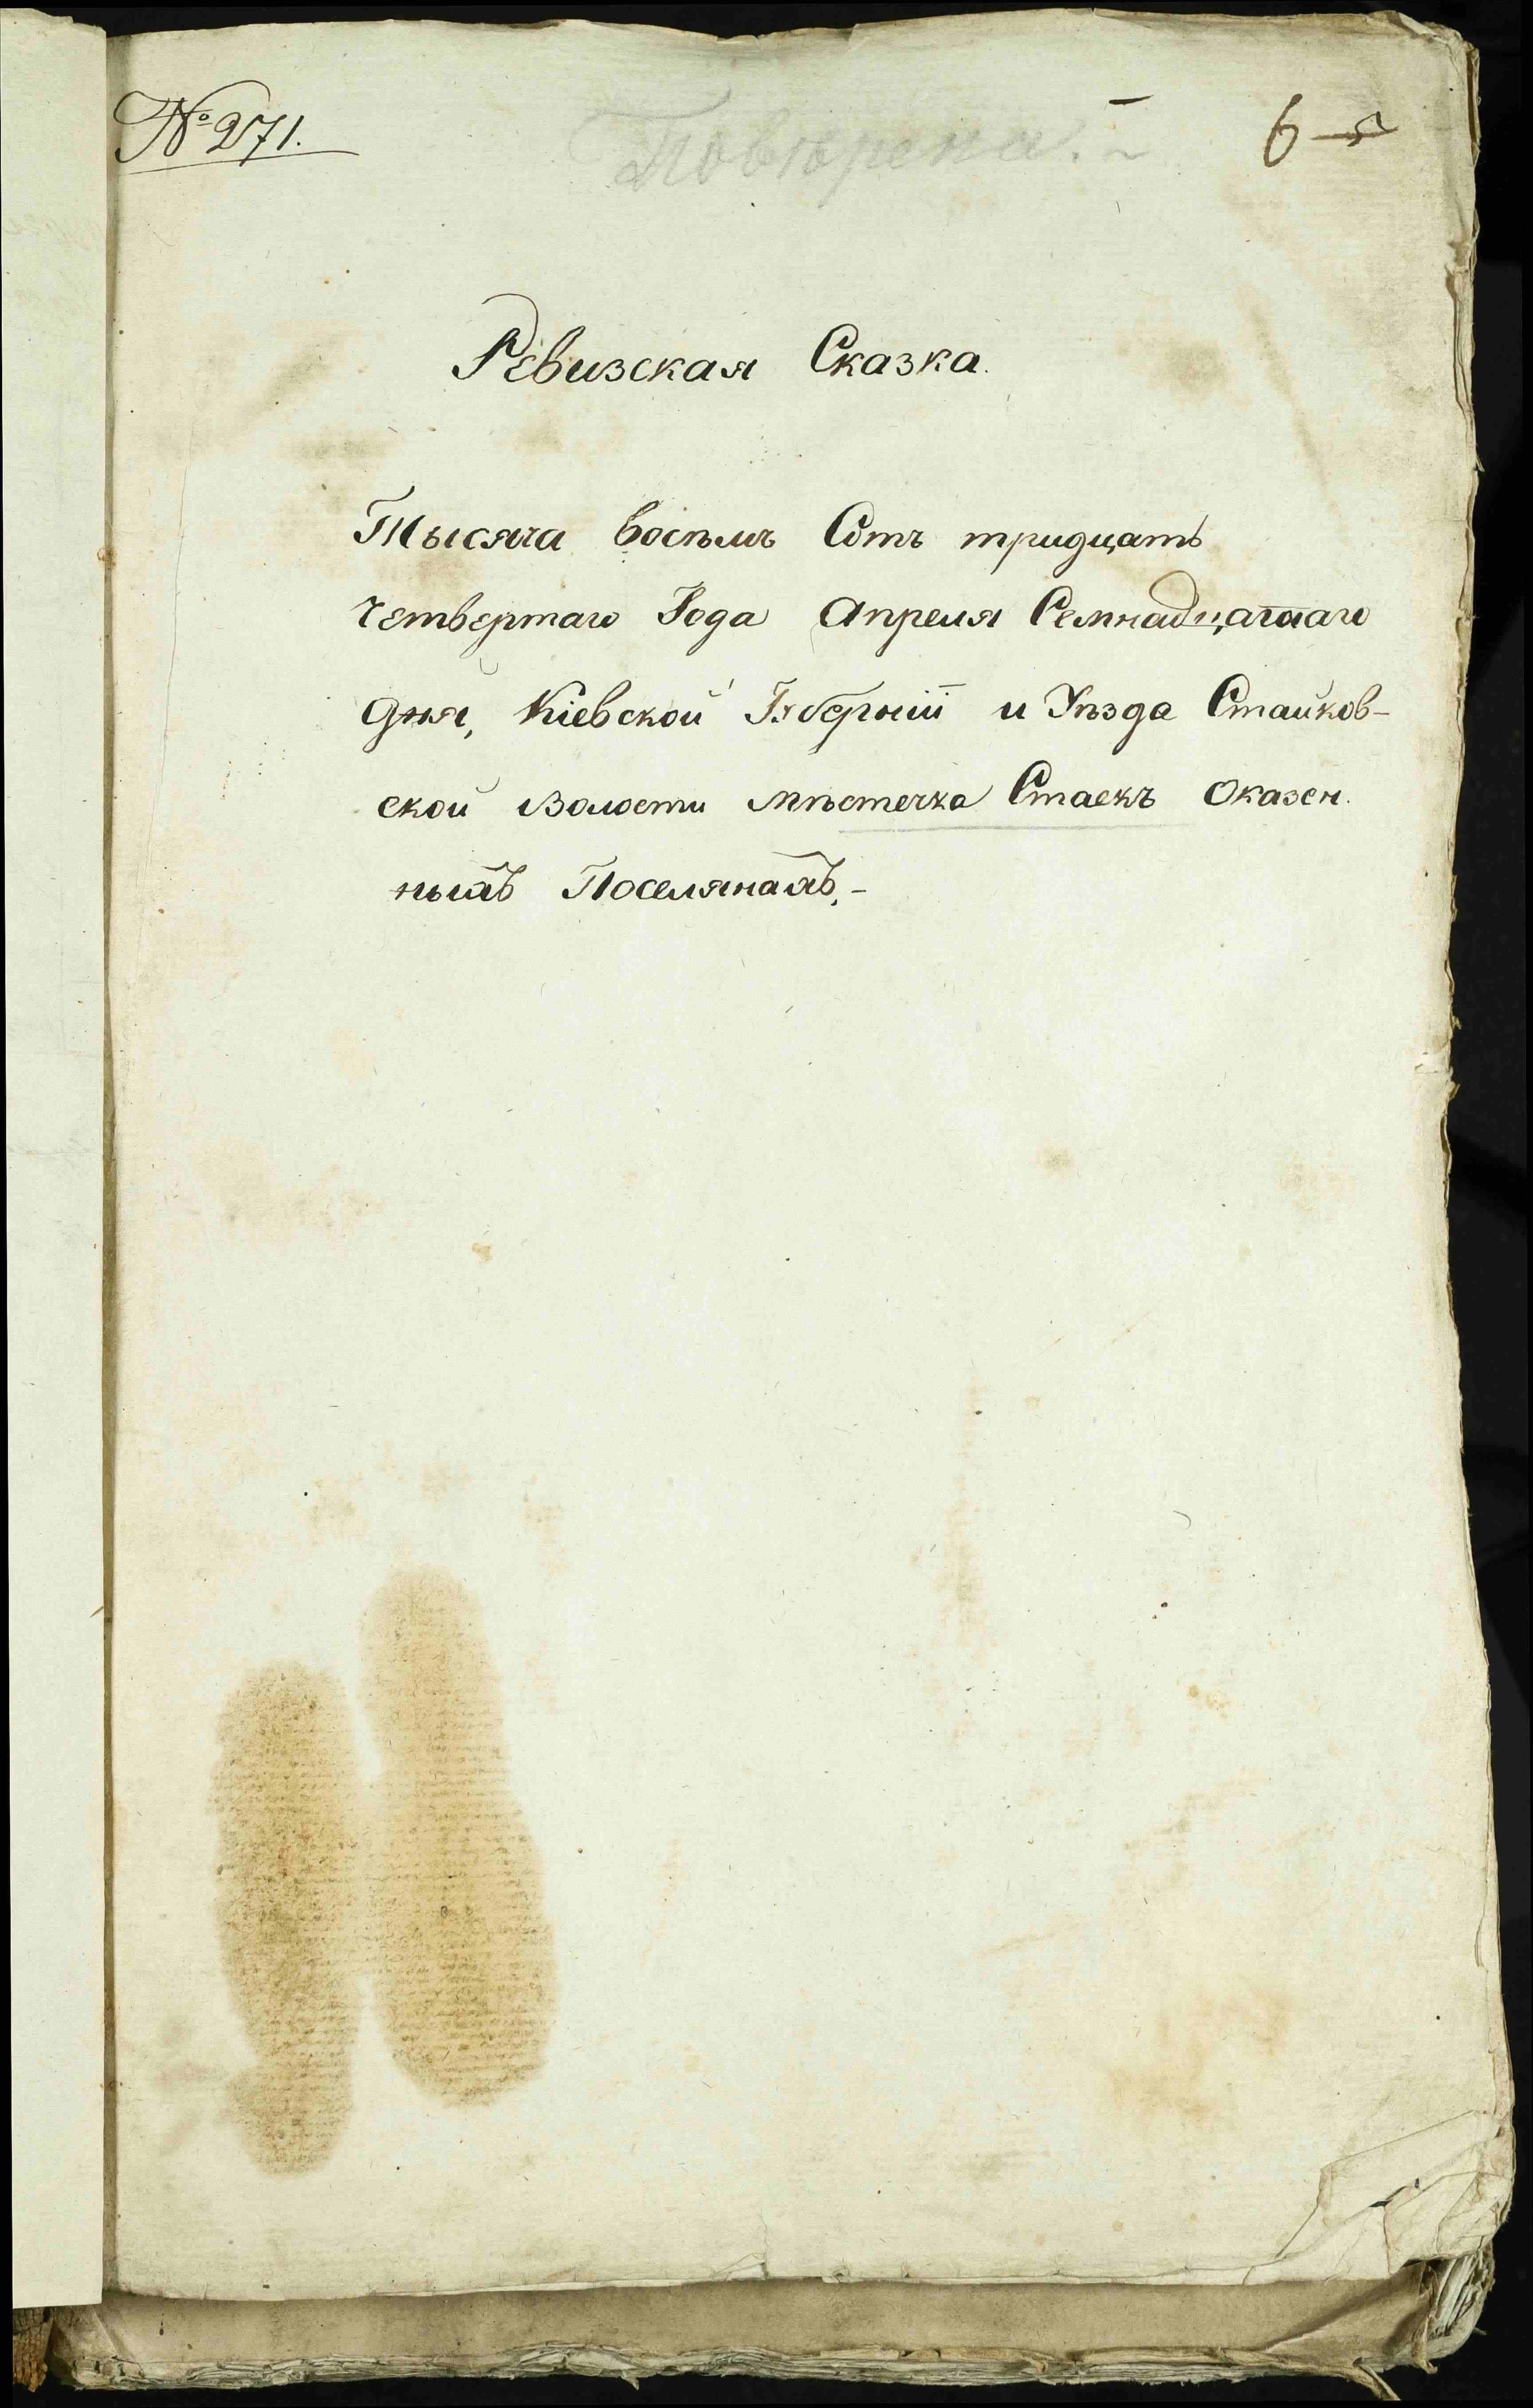 № 271.
Повѣрена.
6
Ревизская Сказка.
Тысяча восѣмъ Сотъ тридцать
четвертаго Года Апреля Семнадцатаго
дня, Кіевской Губерніи и Уѣзда Стайков-
ской Волости Мѣстечка Стаекъ Оказен
ныхъ Поселянахъ,-